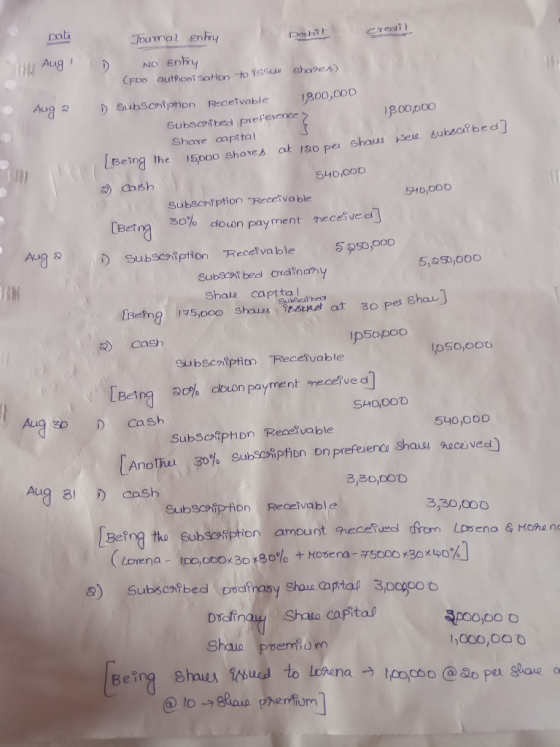 Date Journal entry Debit Credit
Aug 1 1) NO Entry
(for authorisation to issue shares)
Aug 2 1) Subscription Receivable 1,800,000
Subscribed preference } 1,800,000
Share capital
[Being the 15,000 shares at 120 per share were subscribed]
2) Cash 540,000
Subscription Receivable 540,000
[Being 30% down payment received]
Aug 2 1) Subscription Receivable 5,250,000
Subscribed ordinary 5,250,000
Share capital
[Being 175,000 shares subscribed at 30 per share]
2) Cash 1,050,000
Subscription Receivable 1,050,000
[Being 20% down payment received]
Aug 30 1) Cash 540,000
Subscription Receivable 540,000
[Another 30% subscription on preference shares received]
Aug 31 1) Cash 3,30,000
Subscription Receivable 3,30,000
[Being the subscription amount received from Lorena &
(Lorena - 100,000x30x80% + Morena - 75000x30x40%]
2) Subscribed ordinary share capital 3,00,000
Ordinary Share capital 000,000
Share premium 1,000,000
[Being shares issued to Lorena → 1,00,000 @ 20 per share
@ 10 → Share premium]